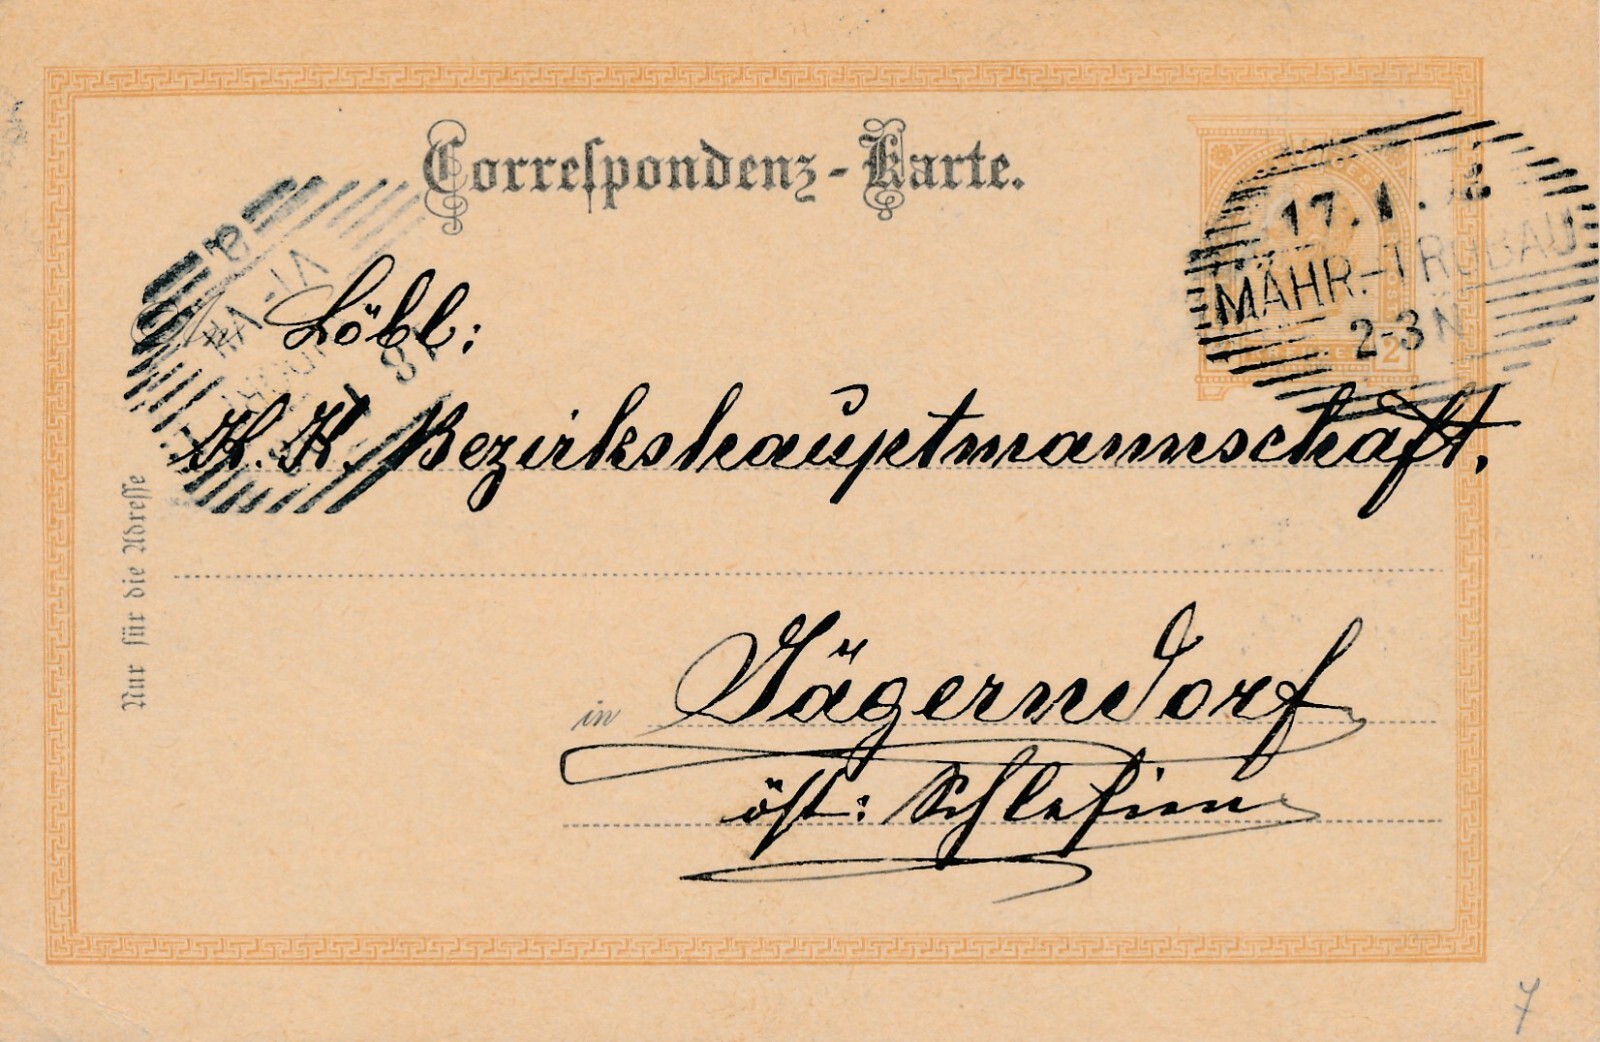 Correspondenz-Karte.
17. 1.
MÄHR.-TRÜBAU
2-3 N
2
a
VI-VII
An Löbl:
K. K. Bezirkshauptmannschaft.
Nur für die Adresse
in Jägerndorf
öst: Schlesien
7